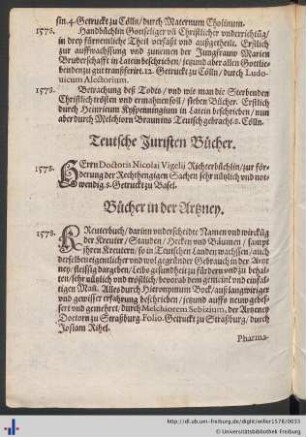 fin. 4. Getruckt zu Cölln/ durch Maternum Cholinum.
1572. Handbüchlin Gottseliger vñ Christlicher vnderrichtūg/
in drey fürnemliche Theil verfaßt vnd außgetheilt. Erstlich
zur auffwachssung vnd zunemen der Jungfrauw Marien
Bruderschafft in Latein beschrieben/ jetzund aber allen Gottlie-
bendenzu gut transferirt. 12. Getruckt zu Cölln/ durch Ludo-
uicum Alectorium.
1572. Betrachung deß Todts/ vnd wie man die Sterbenden
Christlich trösten vnd ermahnen soll/ sieben Bücher. Erstlich
durch Heinricum Kyspenningium in Latein beschrieben/ nun
aber durch Melchiorn Braun ins Teutsch gebracht. 8. Cölln.
Teutsche Juristen Bücher.
1578. HErrn Doctoris Nicolai Vigelii Richterbüchlin/ zur för-
derung der Rechthengigen Sachen sehr nützlich vnd not-
wendig. 8. Getruckt zu Basel.
Bücher in der Artzney.
1578. KReuterbuch/ darinn vnderscheidt Namen vnd würckūg
der Kreuter/ Stauden/ Hecken vnd Bäumen/ sampt
ihren Früchten/ so in Teutschen Landen wachssen/ auch
derselben eigentlicher vnd wolgegründter Gebrauch in der Artz-
ney/ fleissig dargeben/ Leibs gesundheit zu fürdern vnd zu behal-
ten/ sehr nützlich vnd tröstlich/ vorab dem gemeinē vnd einfäl-
tigen Mañ. Alles durch Hieronymum Bock/ auß langwiriger
vnd gewisser erfahrung beschrieben/ jetzund auffs neuw gebes-
sert vnd gemehret/ durch Melchiorem Sebizium, der Artzney
Doctorn zu Straßburg. Folio. Getruckt zu Straßburg/ durch
Josiam Rihel.
Pharma-
http://dl.ub.uni-freiburg.de/diglit/willer1578/0033
© Universitätsbibliothek Freiburg